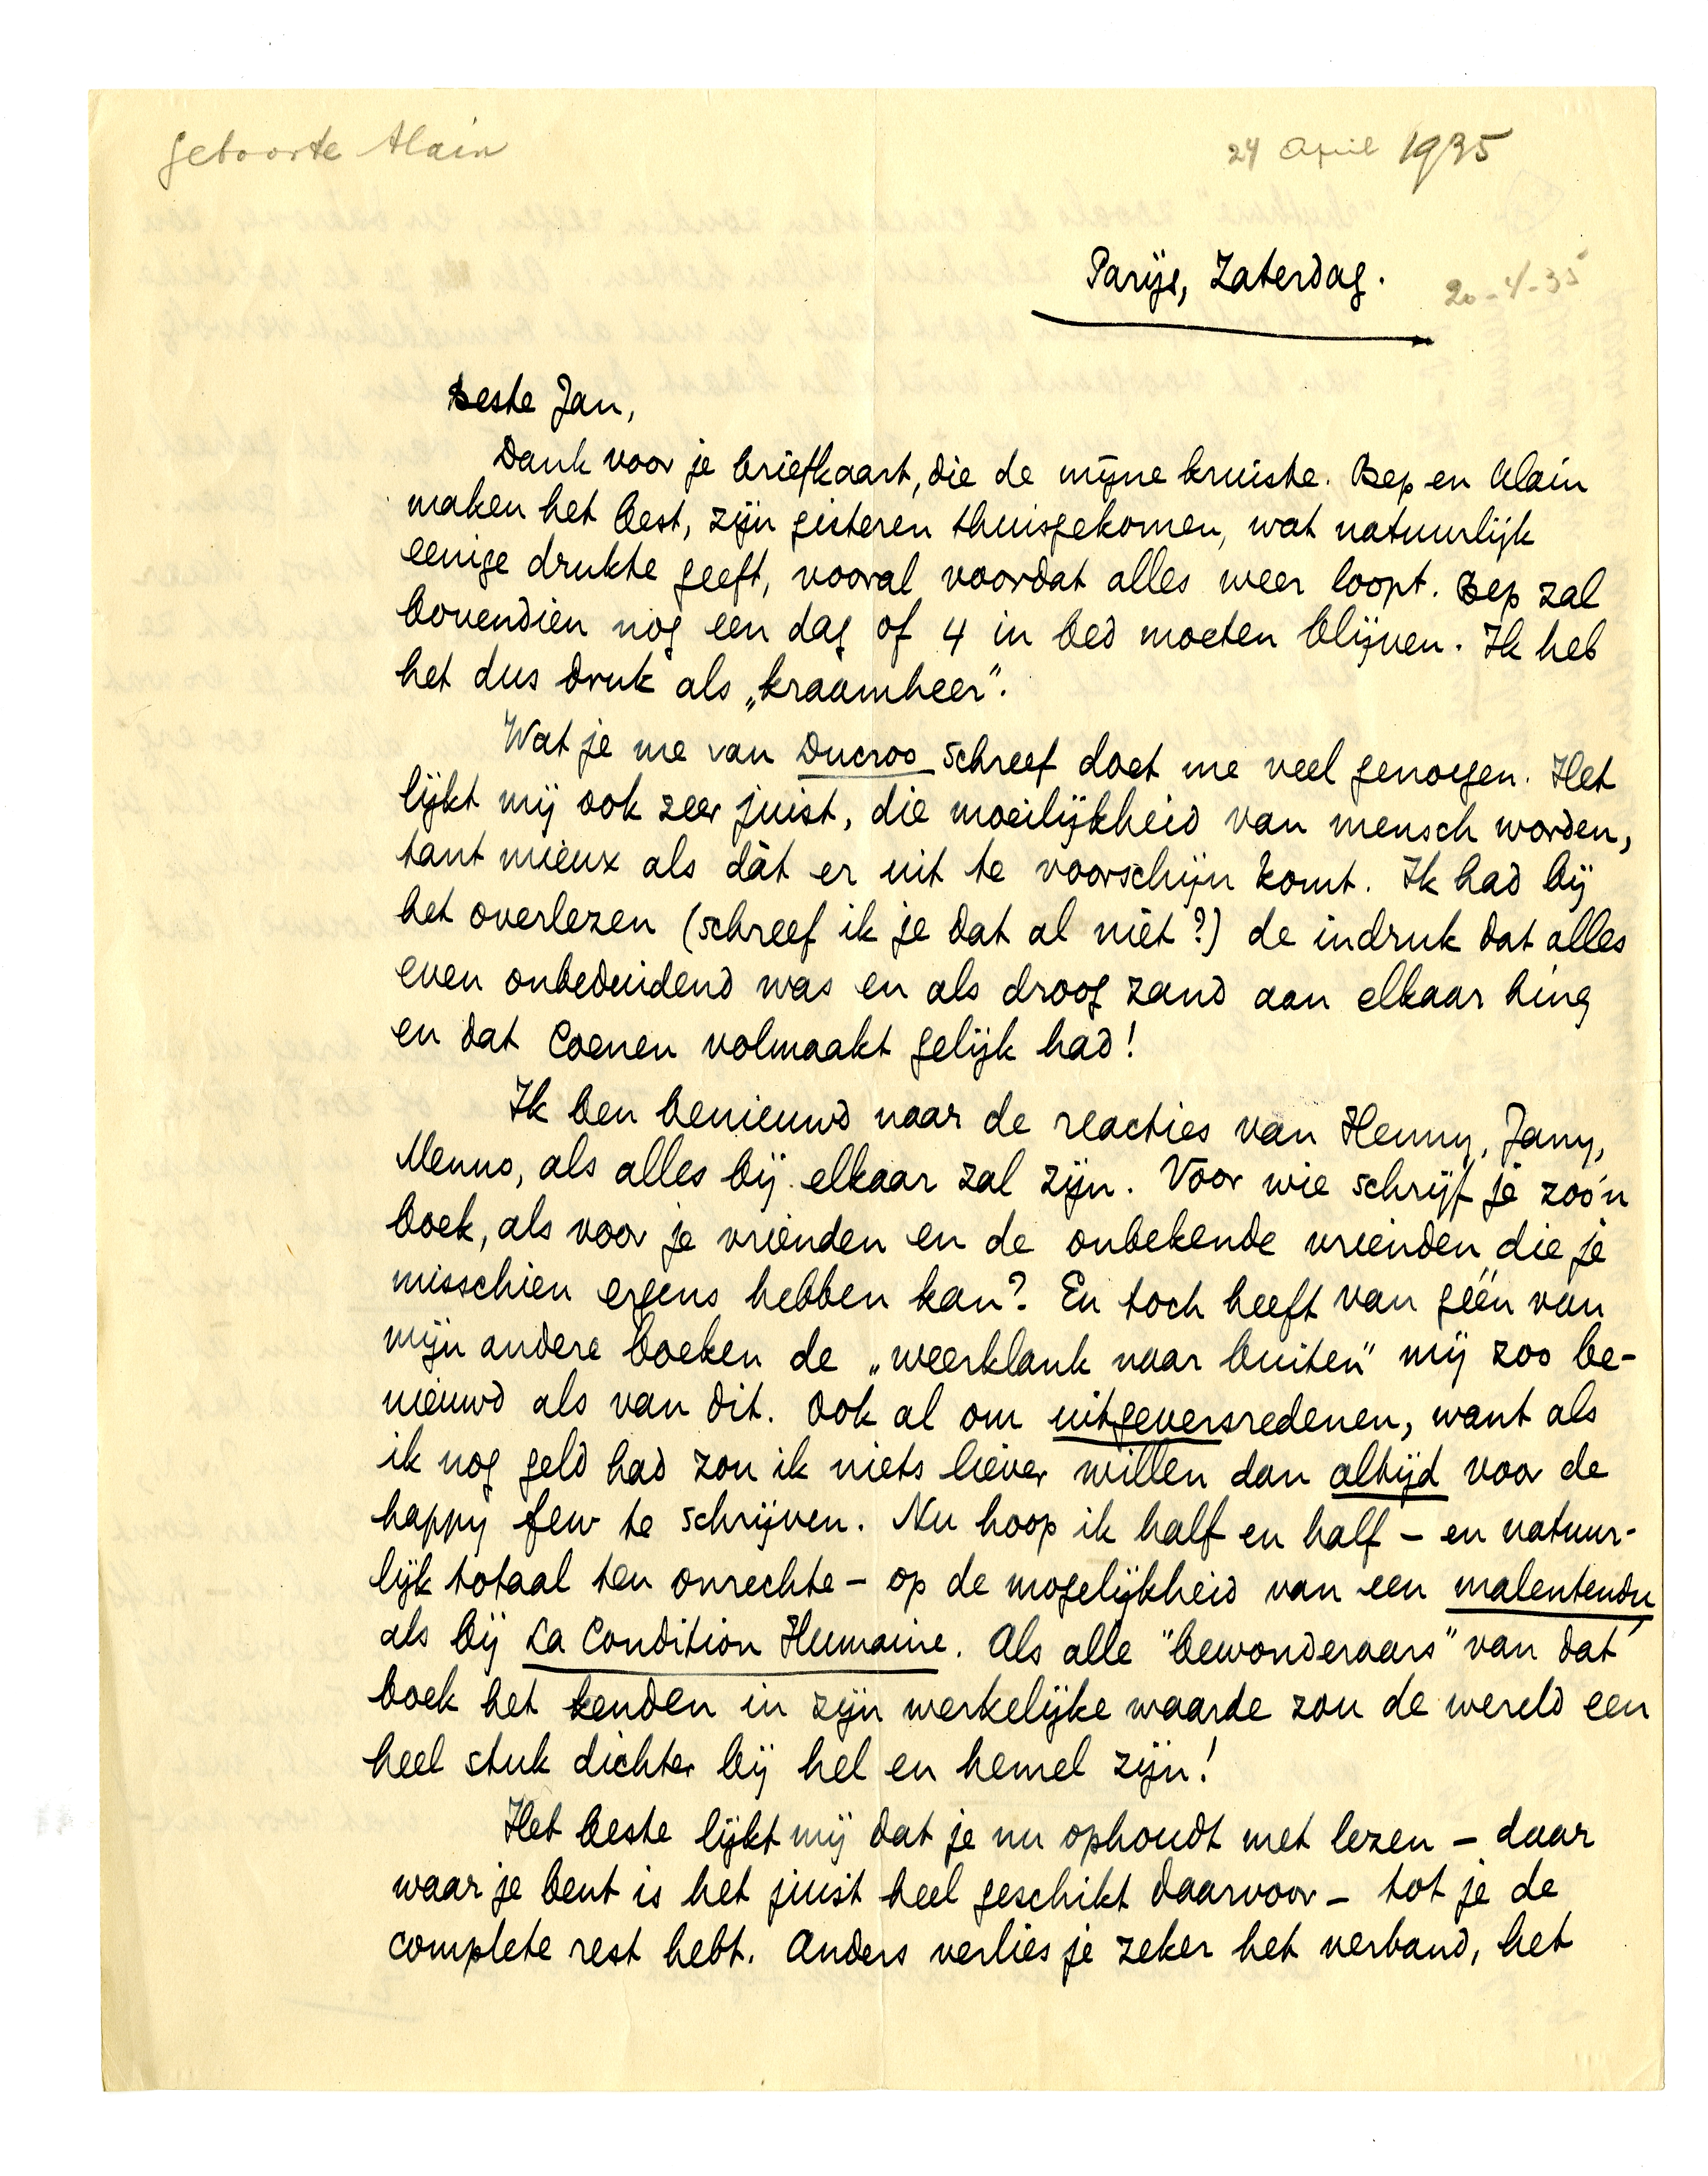 geboorte Alain
24 April 1935
Parijs, Zaterdag.
20-4-35
Beste Jan,
Dank voor je briefkaart, die de mijne kruiste. Bep en Alain
maken het best, zijn gisteren thuisgekomen, wat natuurlijk
eenige drukte geeft, vooral voordat alles weer loopt. Bep zal
bovendien nog een dag of 4 in bed moeten blijven. Ik heb
het dus druk als „kraamheer”.
Wat je me van Ducroo schreef doet me veel genoegen. Het
lijkt mij ook zeer juist, die moeilijkheid van mensch worden,
tant mieux als dàt er uit te voorschijn komt. Ik had bij
het overlezen (schreef ik je dat al niet?) de indruk dat alles
even onbeduidend was en als droog zand aan elkaar hing
en dat Coenen volmaakt gelijk had!
Ik ben benieuwd naar de reacties van Henny, Jany,
Menno, als alles bij elkaar zal zijn. Voor wie schrijf je zoo'n
boek, als voor je vrienden en de onbekende vrienden die je
misschien ergens hebben kan? En toch heeft van géén van
mijn andere boeken de „weerklank naar buiten” mij zoo be-
nieuwd als van dit. Ook al om uitgeversredenen, want als
ik nog geld had zou ik niets liever willen dan altijd voor de
happy few te schrijven. Nu hoop ik half en half – en natuur-
lijk totaal ten onrechte – op de mogelijkheid van een malentendu
als bij La Condition Humaine. Als alle "bewonderaars" van dat
boek het kenden in zijn werkelijke waarde zou de wereld een
heel stuk dichter bij hel en hemel zijn!
Het beste lijkt mij dat je nu ophoudt met lezen – daar
waar je bent is het juist heel geschikt daarvoor – tot je de
complete rest hebt. Anders verlies je zeker het verband, het